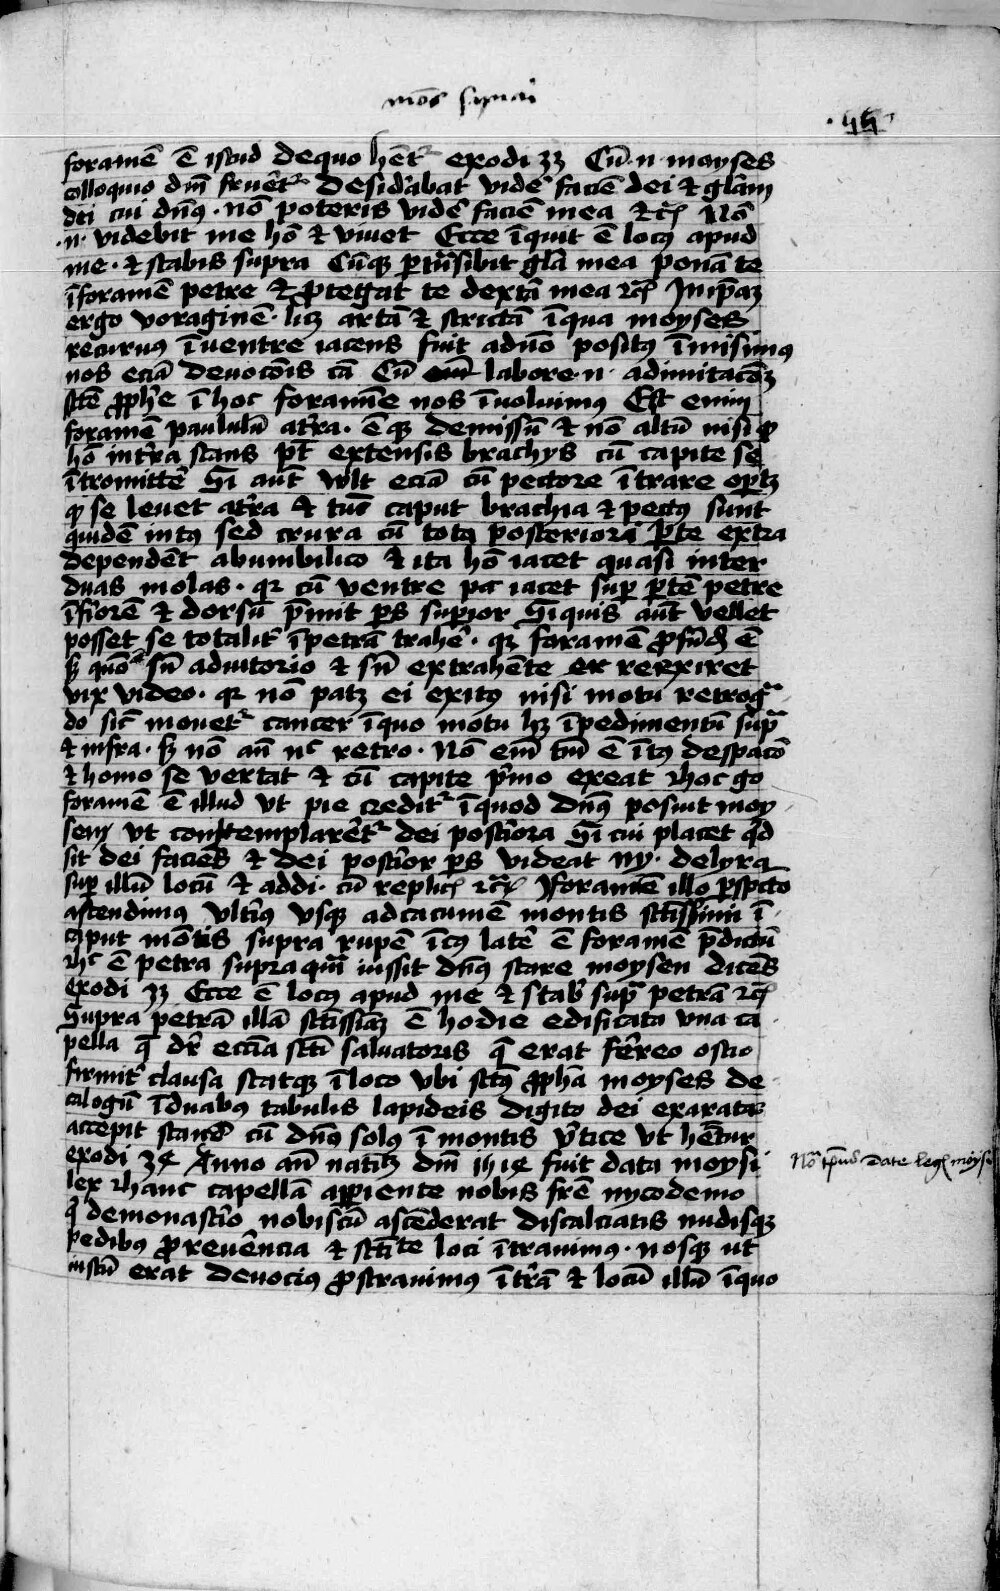 mōs synai
foramē ē istud dequo hēt᷑ exodi 33 Cū .n. moyses
colloquio dm̄ fruēt᷑ desid'abat vidē faciē dei & glām
dei cui dn̄s . nō poteris vidē faciē mea &c̄ Nō
.n. videbit me hō & viuet Ecce īquit ē locꝰ apud
me . & stabis supra Cūqꝫ ꝑtn̄sibit glā mea ponā te
īforamē petre & ꝓtegat te dextā mea ⁊c̄ In ip̄aꝫ
ergo voraginē . lꝫ artā & strictā īqua moyses
recuruꝰ īuentre iacens fuit adn̄o positꝰ īmisimꝰ
nos eciā deuocōis cā Cū labore .n. adimitacōꝫ
sctē ꝓphē ī hoc foramīe nos īuoluimꝰ Est enim
foramē paululū at'ra . ē qꝫ demissū & nō altū nisi ꝙ
hō int'ra stans pt̄ extensis brachys cū capite se
ītromittē Si aūt wlt eciā cū pectore ītrare oꝑtꝫ
ꝙ se leuet at'ra & tūc caput brachia & pectꝰ sunt
quidē intꝰ sed crura cū tota posteriori ꝑte extra
dependēt abumbilico & ita hō iacet quasi inter
duas molas . qꝛ cū ventre iacet suꝑ ꝑtē petre
īfiorē & dorsū p̄mit ꝑs suꝑior Si quis aūt vellet
posset se totalit' īpetrā trahē . qꝫ foramē ꝓfūdū ē
sꝫ quō sn̄ adiutorio & sn̄ extrahēte reexiret
vix video . qꝛ nō patꝫ ei exitꝰ nisi motu retrog᷑
do sic̄ mouet᷑ cancer īquo motu hꝫ īpedimentū sup᷑
& infra . sꝫ nō aū nc̄ retro . Nō em̄ tm̄ ē ītꝰ despacō
& homo se vertat & cū capite p̄mo exeat ⁊hoc go
foramē ē illud vt pie credit᷑ īquod dn̄s posuit moy
sem vt contemplarēt᷑ dei post'iora Si cui placet qd̄
sit dei facies & dei post'ior ꝑs videat ny . delyra
suꝑ illū locū & addi . cū replic̄ ⁊c̄ Iforamē illo ꝑspcō
ascendimꝰ vlt'iꝰ vsqꝫ adcacumē montis sctīssimi ī
caput mōtis supra rupē īcꝰ latē ē foramē p̄dictū
⁊hc̄ ē petra supra quā iussit dn̄s stare moysen dicēs
exodi 33 Ecce ē locꝰ apud me & stab' sup᷑ petrā ⁊c̄
Supra petrā illā sctīssiāꝫ ē hodie edificata vna ca
pella q̄ dr̄ ecc̄ia sctī saluatoris q̄ erat fērreo ostio
firmit' clausa statqꝫ īloco vbi sctꝰ ꝓphā moyses de
calogū īduabꝰ tabulis lapideis digito dei exaratꝰ
accepit stanē cū dn̄o solꝰ ī montis v̄tice vt hētur
exodi 34 Anno aū natītꝫ dm̄ fuit data moysi
lex ⁊hanc capellā aꝑiente nobis frē nycodemo
q' demonast'io nobiscū ascēderat discalciatis nudisqꝫ
pedibꝰ ꝓreuēncia & sctīte loci ītrauimꝰ . nosqꝫ ut
iustū erat deuociꝰ ꝓstrauimꝰ īt'rā & locū illū īquo
Nō tp̄us date legꝭ moysi